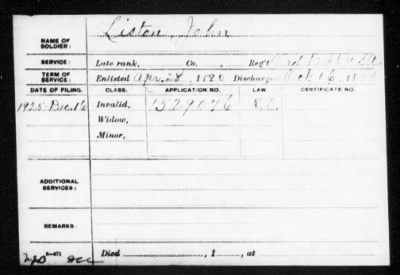 Liston, John
NAME OF SOLDIER:
SERVICE: Late rank, Co. , Reg't
TERM OF SERVICE: Enlisted Apr. 28, 18 Discharged Oct. 16, 18
DATE OF FILING. CLASS. APPLICATION NO. LAW. CERTIFICATE NO.
1925-Dec. 16 Invalid, 1529046
Widow,
Minor,
ADDITIONAL SERVICES:
REMARKS:
Died , 1 , at